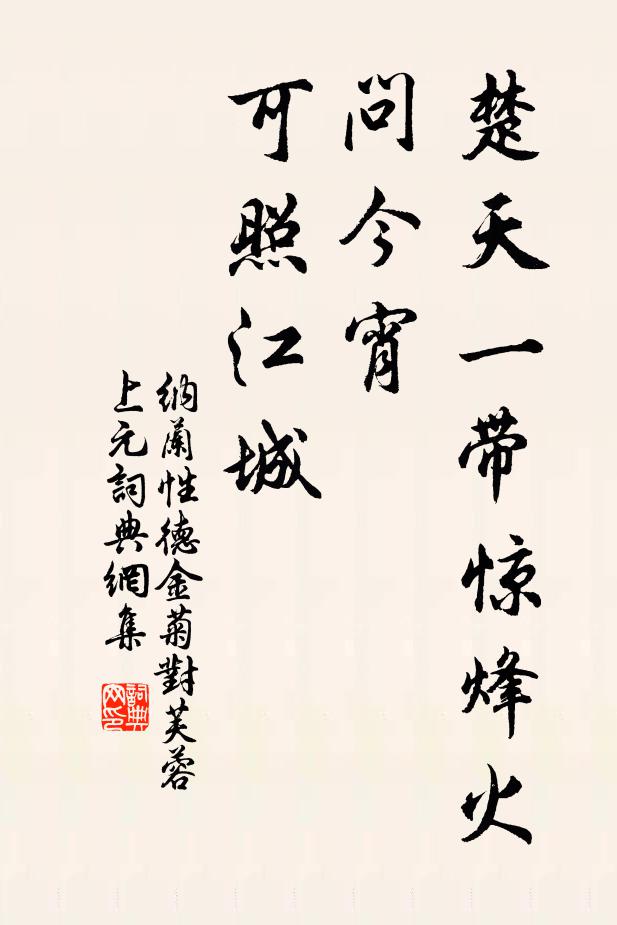 楚天一带惊烽火
問今宵
可照江城
納蘭性德金菊對芙蓉
上元詞典網集
詞典
网印